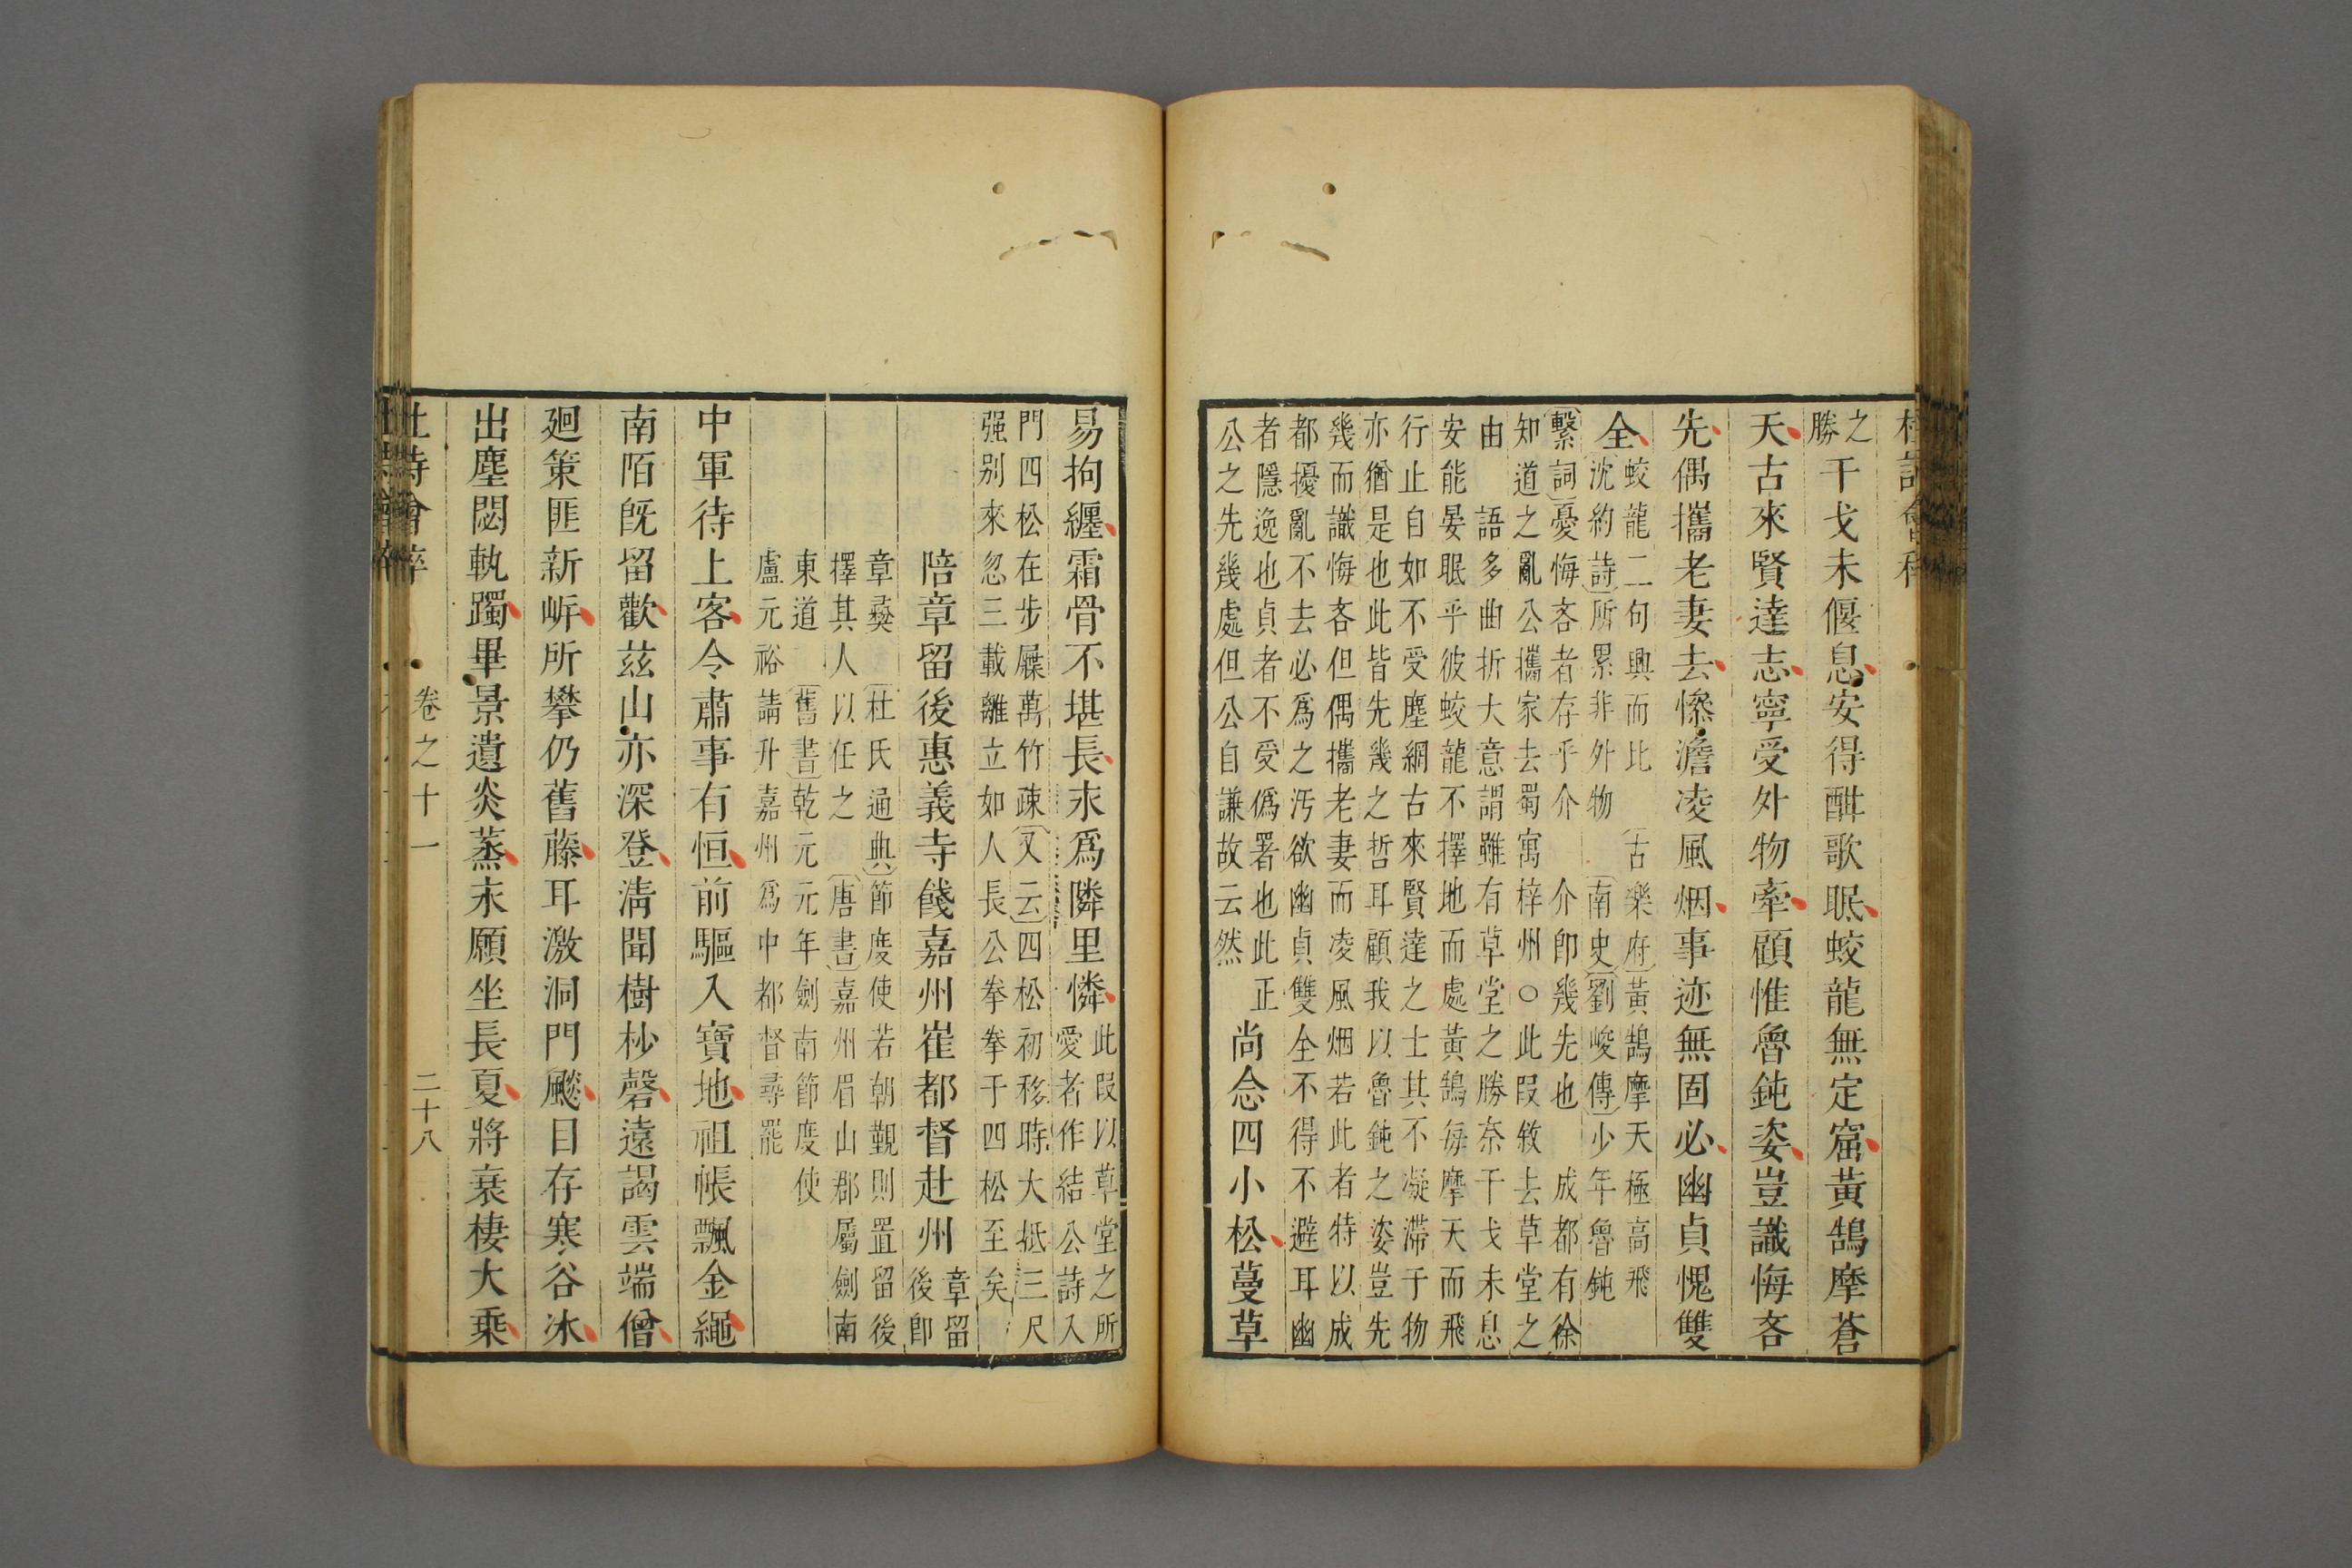 之
勝
干戈未偃息安得酣歌眠蛟龍無定窟黃鵠摩蒼
天古來賢達志寧受外物牽顧惟魯鈍姿豈識悔吝
先偶攜老妻去慘澹凌風烟事迹無固必幽貞愧雙
全
蛟龍二句興而比 古樂府黃鵠摩天極高飛
沈約詩所累非外物 南史劉峻傳少年魯鈍
繫詞憂悔吝者存乎介 介卽幾先也 成都有徐
知道之亂公攜家去蜀寓梓州○此叚敘去草堂之
由 語多曲折大意謂雖有草堂之勝奈干戈未息
安能晏眠乎彼蛟龍不擇地而處黃鵠每摩天而飛
行止自如不受塵網古來賢達之士其不凝滯于物
亦猶是也此皆先幾之哲耳顧我以魯鈍之姿豈先
幾而識悔吝但偶攜老妻而凌風烟若此者特以成
都擾亂不去必爲之汚欲幽貞雙全不得不避耳幽
者隱逸也貞者不受僞署也此正
公之先幾處但公自謙故云然
尚念四小松蔓草
易拘纒霜骨不堪長永爲隣里憐
此叚以草堂之所
愛者作結公詩入
門四松在步屧萬竹疎又云四松初移時大抵三尺
强别來忽三載離立如人長公拳拳于四松至矣
陪章留後惠義寺餞嘉州崔都督赴州
章留
後卽
章彜 杜氏通典節度使若朝覲則置留後
擇其人以任之 唐書嘉州眉山郡屬劍南
東道 舊書乾元元年劍南節度使
盧元裕請升嘉州爲中都督尋罷
中軍待上客令肅事有恒前驅入寶地祖帳飄金繩
南陌旣留歡茲山亦深登淸聞樹杪磬遠謁雲端僧
廻策匪新岍所攀仍舊藤耳激洞門飈目存寒谷冰
出塵閟軌躅畢景遺炎蒸永願坐長夏將衰棲大乘
杜詩會稡 卷之十一 二十八